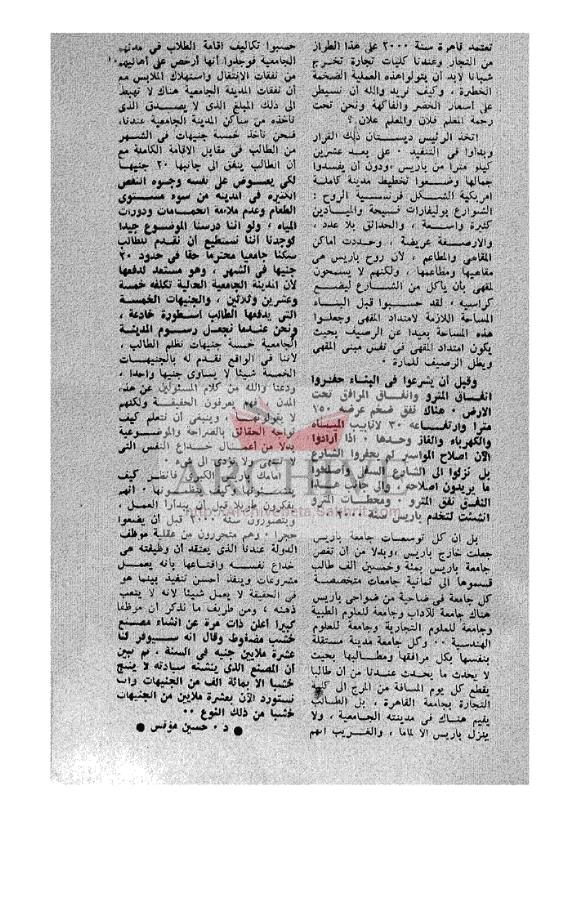 تعتمد قاهرة سنة ٢٠٠٠ على هذا الطراز
من التجار وعندنا كليات تجارة تخرج
شبانا لابد أن يتولوا هذه العملية الضخمة
الخطيرة ، وكيف نريد والله أن نسيطر
على أسعار الخضر والفاكهة ونحن تحت
رحمة المعلم فلان والمعلم علان ؟
اتخذ الرئيس ديستان ذلك القرار
وبدأوا في التنفيذ . على بعد عشرين
كيلو مترا من باريس ، ودون أن يفسدوا
جمالها وضعوا تخطيط مدينة كاملة
أمريكية الشكل فرنسية الروح :
الشوارع بوليفارات فسيحة والميادين
كثيرة واسعة ، والحدائق بلا عدد ،
والأرصفة عريضة ، وحددت أماكن
المقاهي والمطاعم ، لأن روح باريس هي
مقاهيها ومطاعمها ، ولكنهم لا يسمحون
لمقهى بأن يأكل من الشارع ليضع
كراسيه ، لقد حسبوا قبل البناء
المساحة اللازمة لامتداد المقهى وجعلوا
هذه المساحة بعيدا عن الرصيف بحيث
يكون امتداد المقهى في نفس مبنى المقهى
ويظل الرصيف للمارة .
وقبل أن يشرعوا في البناء حفروا
أنفاق المترو وأنفاق المرافق تحت
الأرض . هناك نفق ضخم عرضه ١٥٠
مترا وارتفاعه ٣٠ لأنابيب المياه
والكهرباء والغاز وحدها . اذا أرادوا
الآن اصلاح المواسير لم يحفروا الشارع
بل نزلوا الى الشارع السفلى وأصلحوا
ما يريدون اصلاحه ، والى جانب هذا
النفق نفق المترو . ومحطات المترو
انشئت لتخدم باريس سنة ٢٠٠٠
بل ان كل توسعات جامعة باريس
جعلت خارج باريس ، وبدلا من أن تغص
جامعة باريس بمئة وخمسين ألف طالب
قسموها الى ثمانية جامعات متخصصة
كل جامعة في ضاحية من ضواحي باريس
هناك جامعة للآداب وجامعة للعلوم الطبية
وجامعة للعلوم التجارية وجامعة للعلوم
الهندسية .. وكل جامعة مدينة مستقلة
بنفسها بكل مرافقها ومطالبها بحيث
لا يحدث ما يحدث عندنا من أن طالبا
يقطع كل يوم المسافة من المرج الى كلية
التجارة بجامعة القاهرة ، بل الطالب
يقيم هناك في مدينته الجامعية ، ولا
ينزل باريس الا لماما ، والغريب أنهم
حسبوا تكاليف اقامة الطلاب في مدنهم
الجامعية فوجدوا أنها أرخص على أهاليهم
من نفقات الانتقال واستهلاك الملابس مع
أن نفقات المدينة الجامعية هناك لا تهبط
الى ذلك المبلغ الذي لا يصدق الذي
نأخذه من ساكن المدينة الجامعية عندنا،
فنحن نأخذ خمسة جنيهات في الشهر
من الطالب في مقابل الاقامة الكاملة مع
أن الطالب ينفق الى جانبها ٢٠ جنيها
لكي يعوض على نفسه وجوه النقص
الكثيرة في المدينة من سوء مستوى
الطعام وعدم ملاءمة الحمامات ودورات
المياه ، ولو أننا درسنا الموضوع جيدا
لوجدنا أننا نستطيع أن نقدم للطالب
سكنا جامعيا محترما حقا في حدود ٢٠
جنيها في الشهر ، وهو مستعد لدفعها
لأن المدينة الجامعية الحالية تكلفه خمسة
وعشرين وثلاثين ، والجنيهات الخمسة
التي يدفعها الطالب أسطورة خادعة ،
ونحن عندما نجعل رسوم المدينة
الجامعية خمسة جنيهات نظلم الطالب ،
لأننا في الواقع نقدم له بالجنيهات
الخمسة شيئا لا يساوي جنيها واحدا ،
ودعنا والله من كلام المسئولين عن هذه
المدن ، فهم يعرفون الحقيقة ولكنهم
لا يقولونها ، وينبغي أن نتعلم كيف
نواجه الحقائق بالصراحة والموضوعية
بدلا من أعمال خداع النفس التي
لا تنتهي ولا تؤدي الى شيء .
أمامك باريس الكبرى فانظر كيف
ينشئونها وكيف ينظمونها ، انهم
يفكرون طويلا قبل أن يبدأوا العمل ،
ويتصورون سنة ٢٠٠٠ قبل أن يضعوا
حجرا ، وهم متحررون من عقلية موظف
الدولة عندنا الذي يعتقد أن وظيفته هي
خداع نفسه واقناعها بأنه يعمل
مشروعات وينفذ أحسن تنفيذ بينما هو
في الحقيقة لا يعمل شيئا لأنه لا يتعب
ذهنه ، ومن طريف ما نذكر أن موظفا
كبيرا أعلن ذات مرة عن انشاء مصنع
خشب مضغوط وقال انه سيوفر لنا
عشرة ملايين جنيه في السنة ، ثم تبين
أن المصنع الذي ينشئه سيادته لا ينتج
خشبا الا بمائة ألف من الجنيهات وأننا
نستورد الآن بعشرة ملايين من الجنيهات
خشبا من ذلك النوع ..
● د . حسين مؤنس ●
ARCHIVE